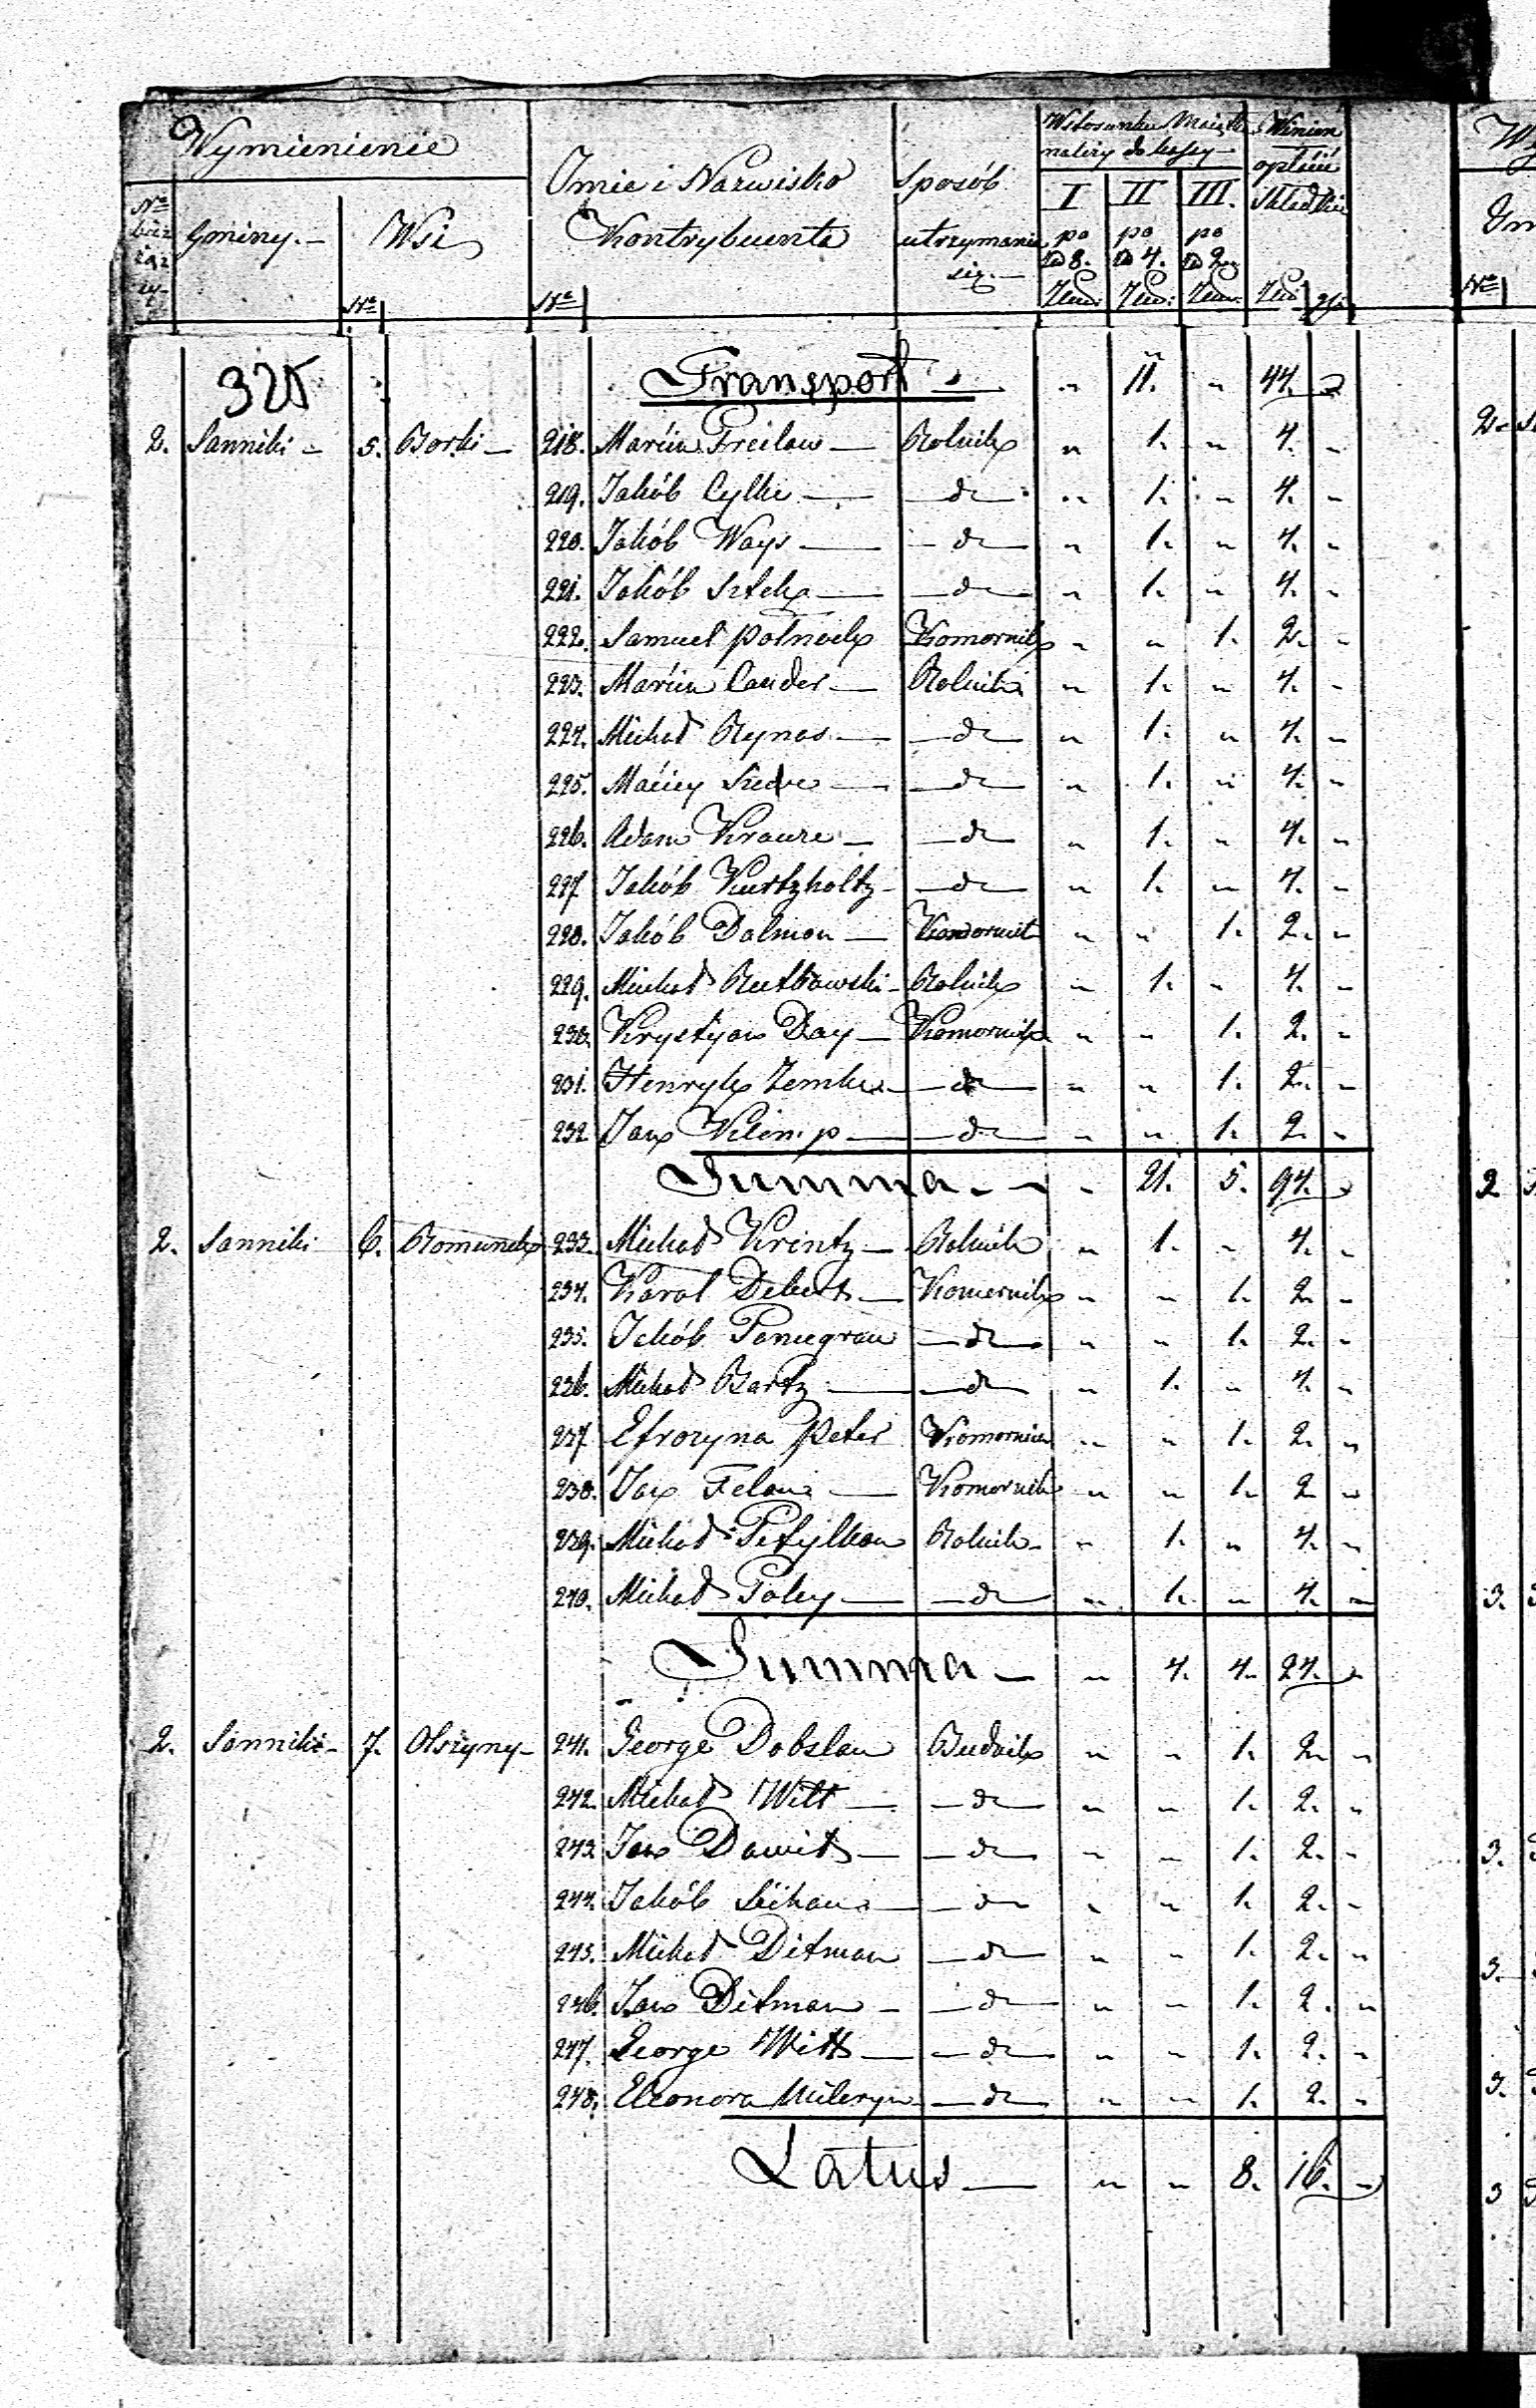 Wymienienie
Imie i Nazwisko
Kontrybuenta
Sposób
utrzymania
się.
W stosunku
należy do klassy
I II III.
po po po
8. 4. 2.
Winien
opłacić
składki
Nro
Gminy.
Nro
Wsi
Nro
325
Transport „ 11. „ 44. „
2. Sanniki 5. Borki 218. Marcin Freilau Rolnik „ 1. „ 4. „
219. Jakób Cylke do „ 1. „ 4. „
220. Jakób Ways do „ 1. „ 4. „
221. Jakób do „ 1. „ 4. „
222. Samuel Komornik „ „ 1. 2. „
223. Marcin Cander Rolnik „ 1. „ 4. „
224. Michał Rynas do „ 1. „ 4. „
225. Maciey do „ 1. „ 4. „
226. Adam Krauze do „ 1. „ 4. „
227. Jakób Kurtzholtz do „ 1. „ 4. „
228. Jakób Dalman Komornik „ „ 1. 2. „
229. Michał Rutkowski Rolnik „ 1. „ 4. „
230. Krystyan Day Komornik „ „ 1. 2. „
231. Henryk Zemke do „ „ 1. 2. „
232. Jan do „ „ 1. 2. „
Summa „ 21. 5. 94. „
2. Sanniki 6. Romunek 233. Michał Krintz Rolnik „ 1. „ 4. „
234. Karol Debert Komornik „ „ 1. 2. „
235. Jakób do „ „ 1. 2. „
236. Michał Bartz do „ 1. „ 4. „
237. Efrozyna Peter Komornica „ „ 1. 2. „
238. Jan Felau Komornik „ „ 1. 2. „
239. Michał Rolnik „ 1. „ 4. „
240. Michał do „ 1. „ 4. „
Summa „ 4. 4. 24. „
2. Sanniki 7. Olszyny 241. George Dobslau Budnik „ „ 1. 2. „
242. Michał Witt do „ „ 1. 2. „
243. Jan Dawid do „ „ 1. 2. „
244. Jakób do „ „ 1. 2. „
245. Michał Ditman do „ „ 1. 2. „
246. Jan Ditman do „ „ 1. 2. „
247. George Witt do „ „ 1. 2. „
248. Eleonora do „ „ 1. 2. „
Latus „ „ 8. 16. „